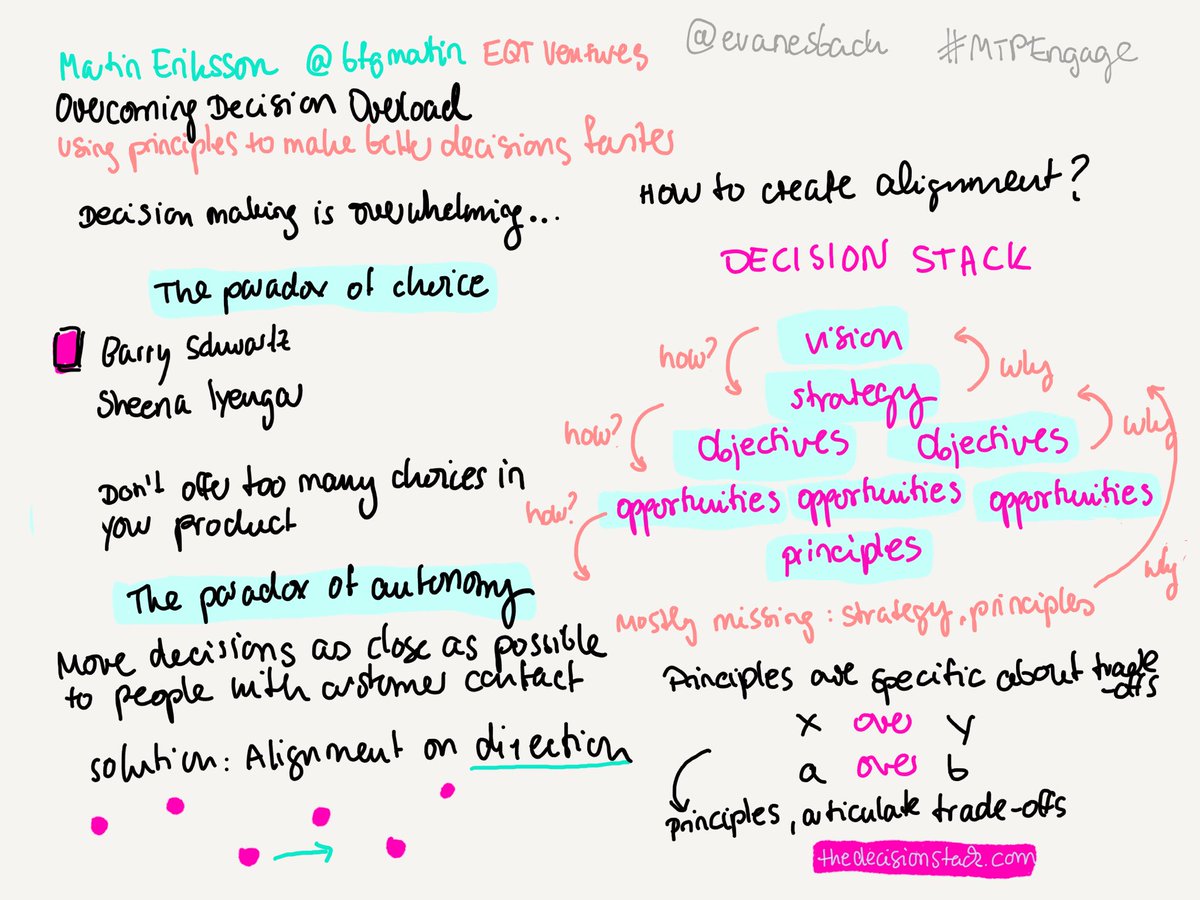 Martin Eriksson @bfgmartin EQT Ventures
@evanesback #MTPEngage
Overcoming Decision Overload
using principles to make better decisions faster
Decision making is overwhelming...
The paradox of choice
Barry Schwartz
Sheena Iyengar
Don't offer too many choices in
your product
The paradox of autonomy
Move decisions as close as possible
to people with customer contact
solution: Alignment on direction
How to create alignment?
DECISION STACK
vision
how? why
strategy
how? why
objectives objectives
how?
opportunities opportunities opportunities
principles
why
Mostly missing: strategy, principles
Principles are specific about trade
-offs
x over y
a over b
principles, articulate trade-offs
thedecisionstack.com